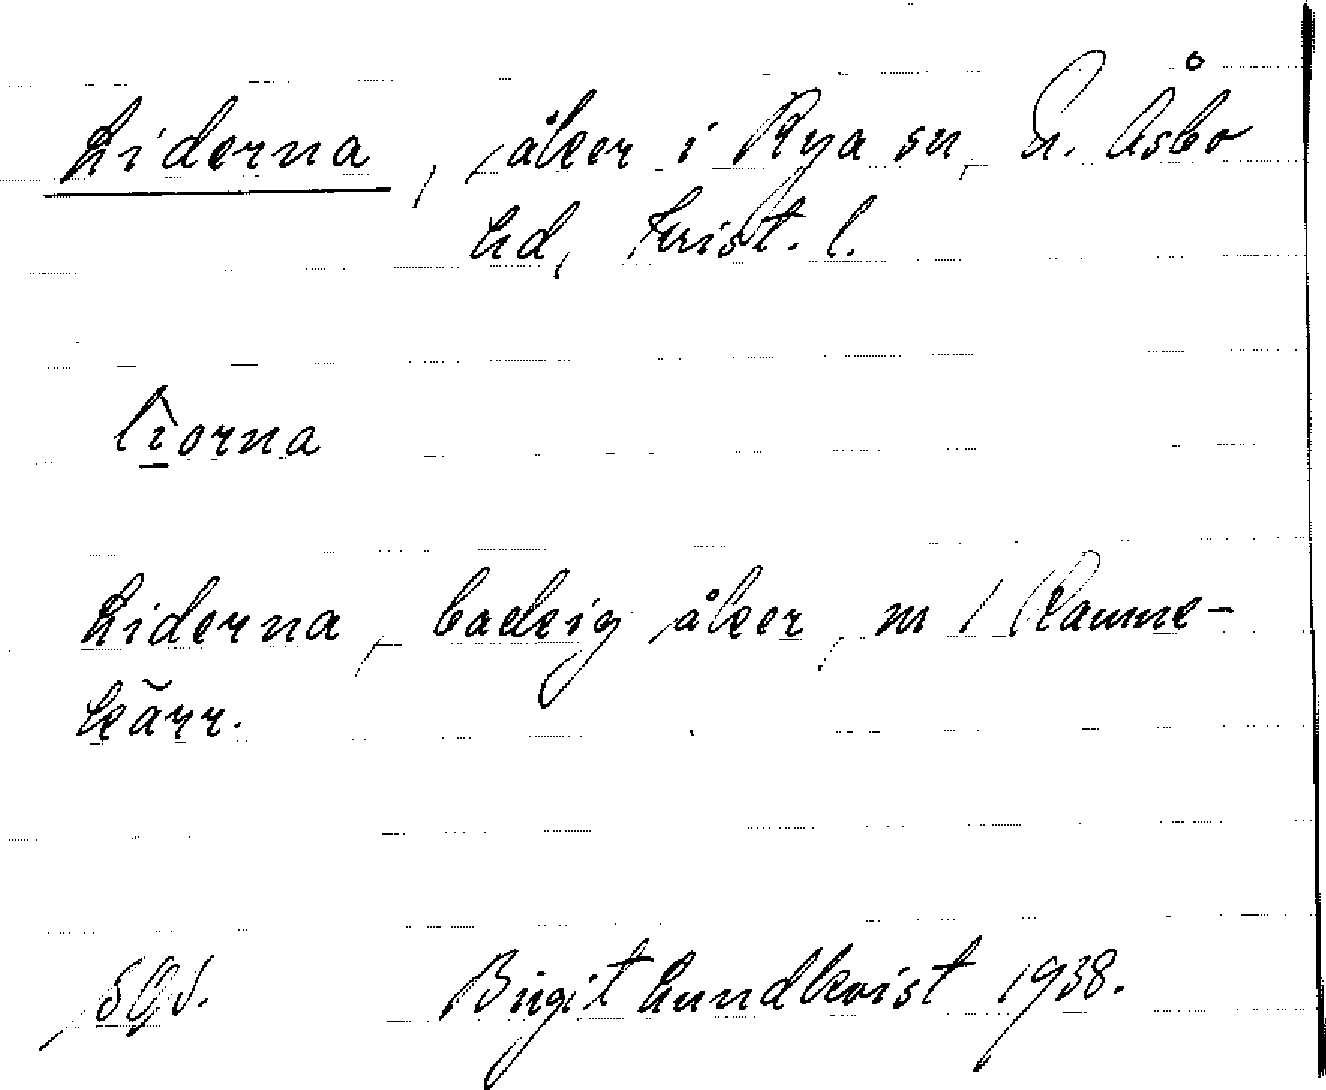 Liderna, åker i Rya sn, N. Åsbo
hd, Krist. l.
li̯orna
Liderna, backig åker, m 1 Ramne-
kärr.
Birgit Lundkvist 1938.